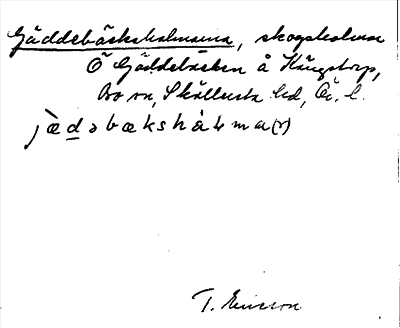 Gäddebäcksholmarna, skogsholmar
Ö Gäddebäcken å Kängstorp,
Bo sn, Sköllersta hd, Ör. l.
jædəbækshålma(r)
T. Ericson